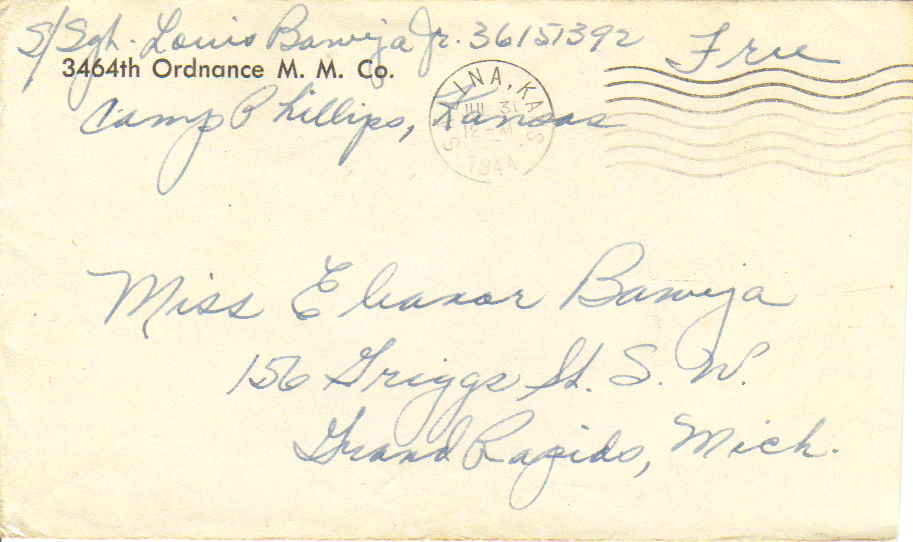 S/Sgt. Louis Baweja Jr. 36151392
Free
3464th Ordnance M. M. Co.
Camp Phillips, Kansas
SALINA, KANS.
JUL 31
12 - M
1944
Miss Eleanor Baweja
156 Griggs St. S. W.
Grand Rapids, Mich.